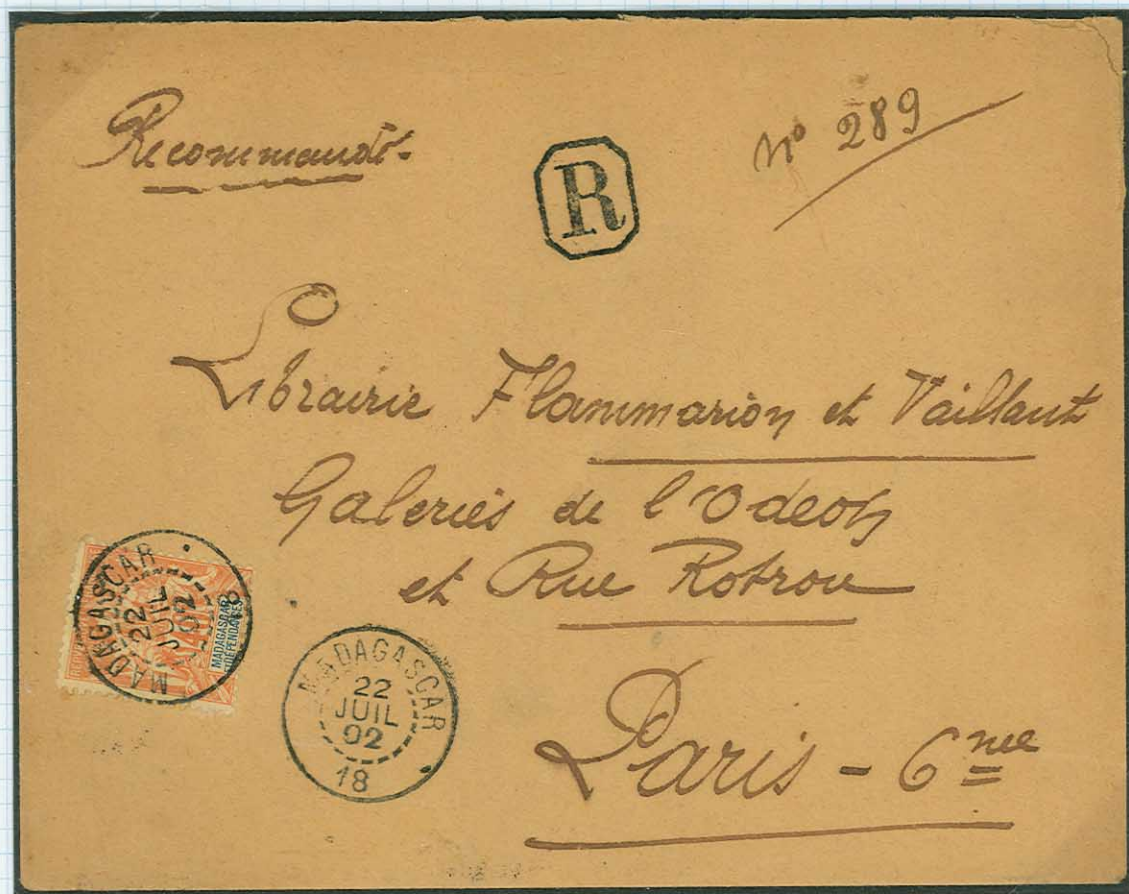 Recommandé.
R
No 289
Librairie Flammarion et Vaillant
Galeries de l'Odeon
et Rue Rotrou
Paris - 6me
MADAGASCAR
22
JUIL
02
18
MADAGASCAR
ET DÉPENDANCES
40
MADAGASCAR
22
JUIL
02
18